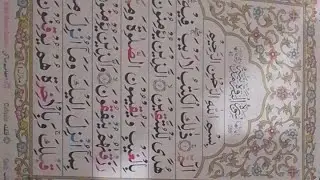 بِسْمِ اللهِ الرَّحْمٰنِ الرَّحِيْمِ
الٓمّٓ ۚ ذٰلِكَ الْكِتٰبُ لَا رَيْبَ فِيْهِ
هُدًى لِّلْمُتَّقِيْنَ الَّذِيْنَ يُؤْمِنُوْنَ
بِالْغَيْبِ وَيُقِيْمُوْنَ الصَّلٰوةَ وَمِمَّا
رَزَقْنٰهُمْ يُنْفِقُوْنَ وَالَّذِيْنَ يُؤْمِنُوْنَ
بِمَآ اُنْزِلَ اِلَيْكَ وَمَآ اُنْزِلَ مِنْ
قَبْلِكَ وَبِالْاٰخِرَةِ هُمْ يُوْقِنُوْنَ